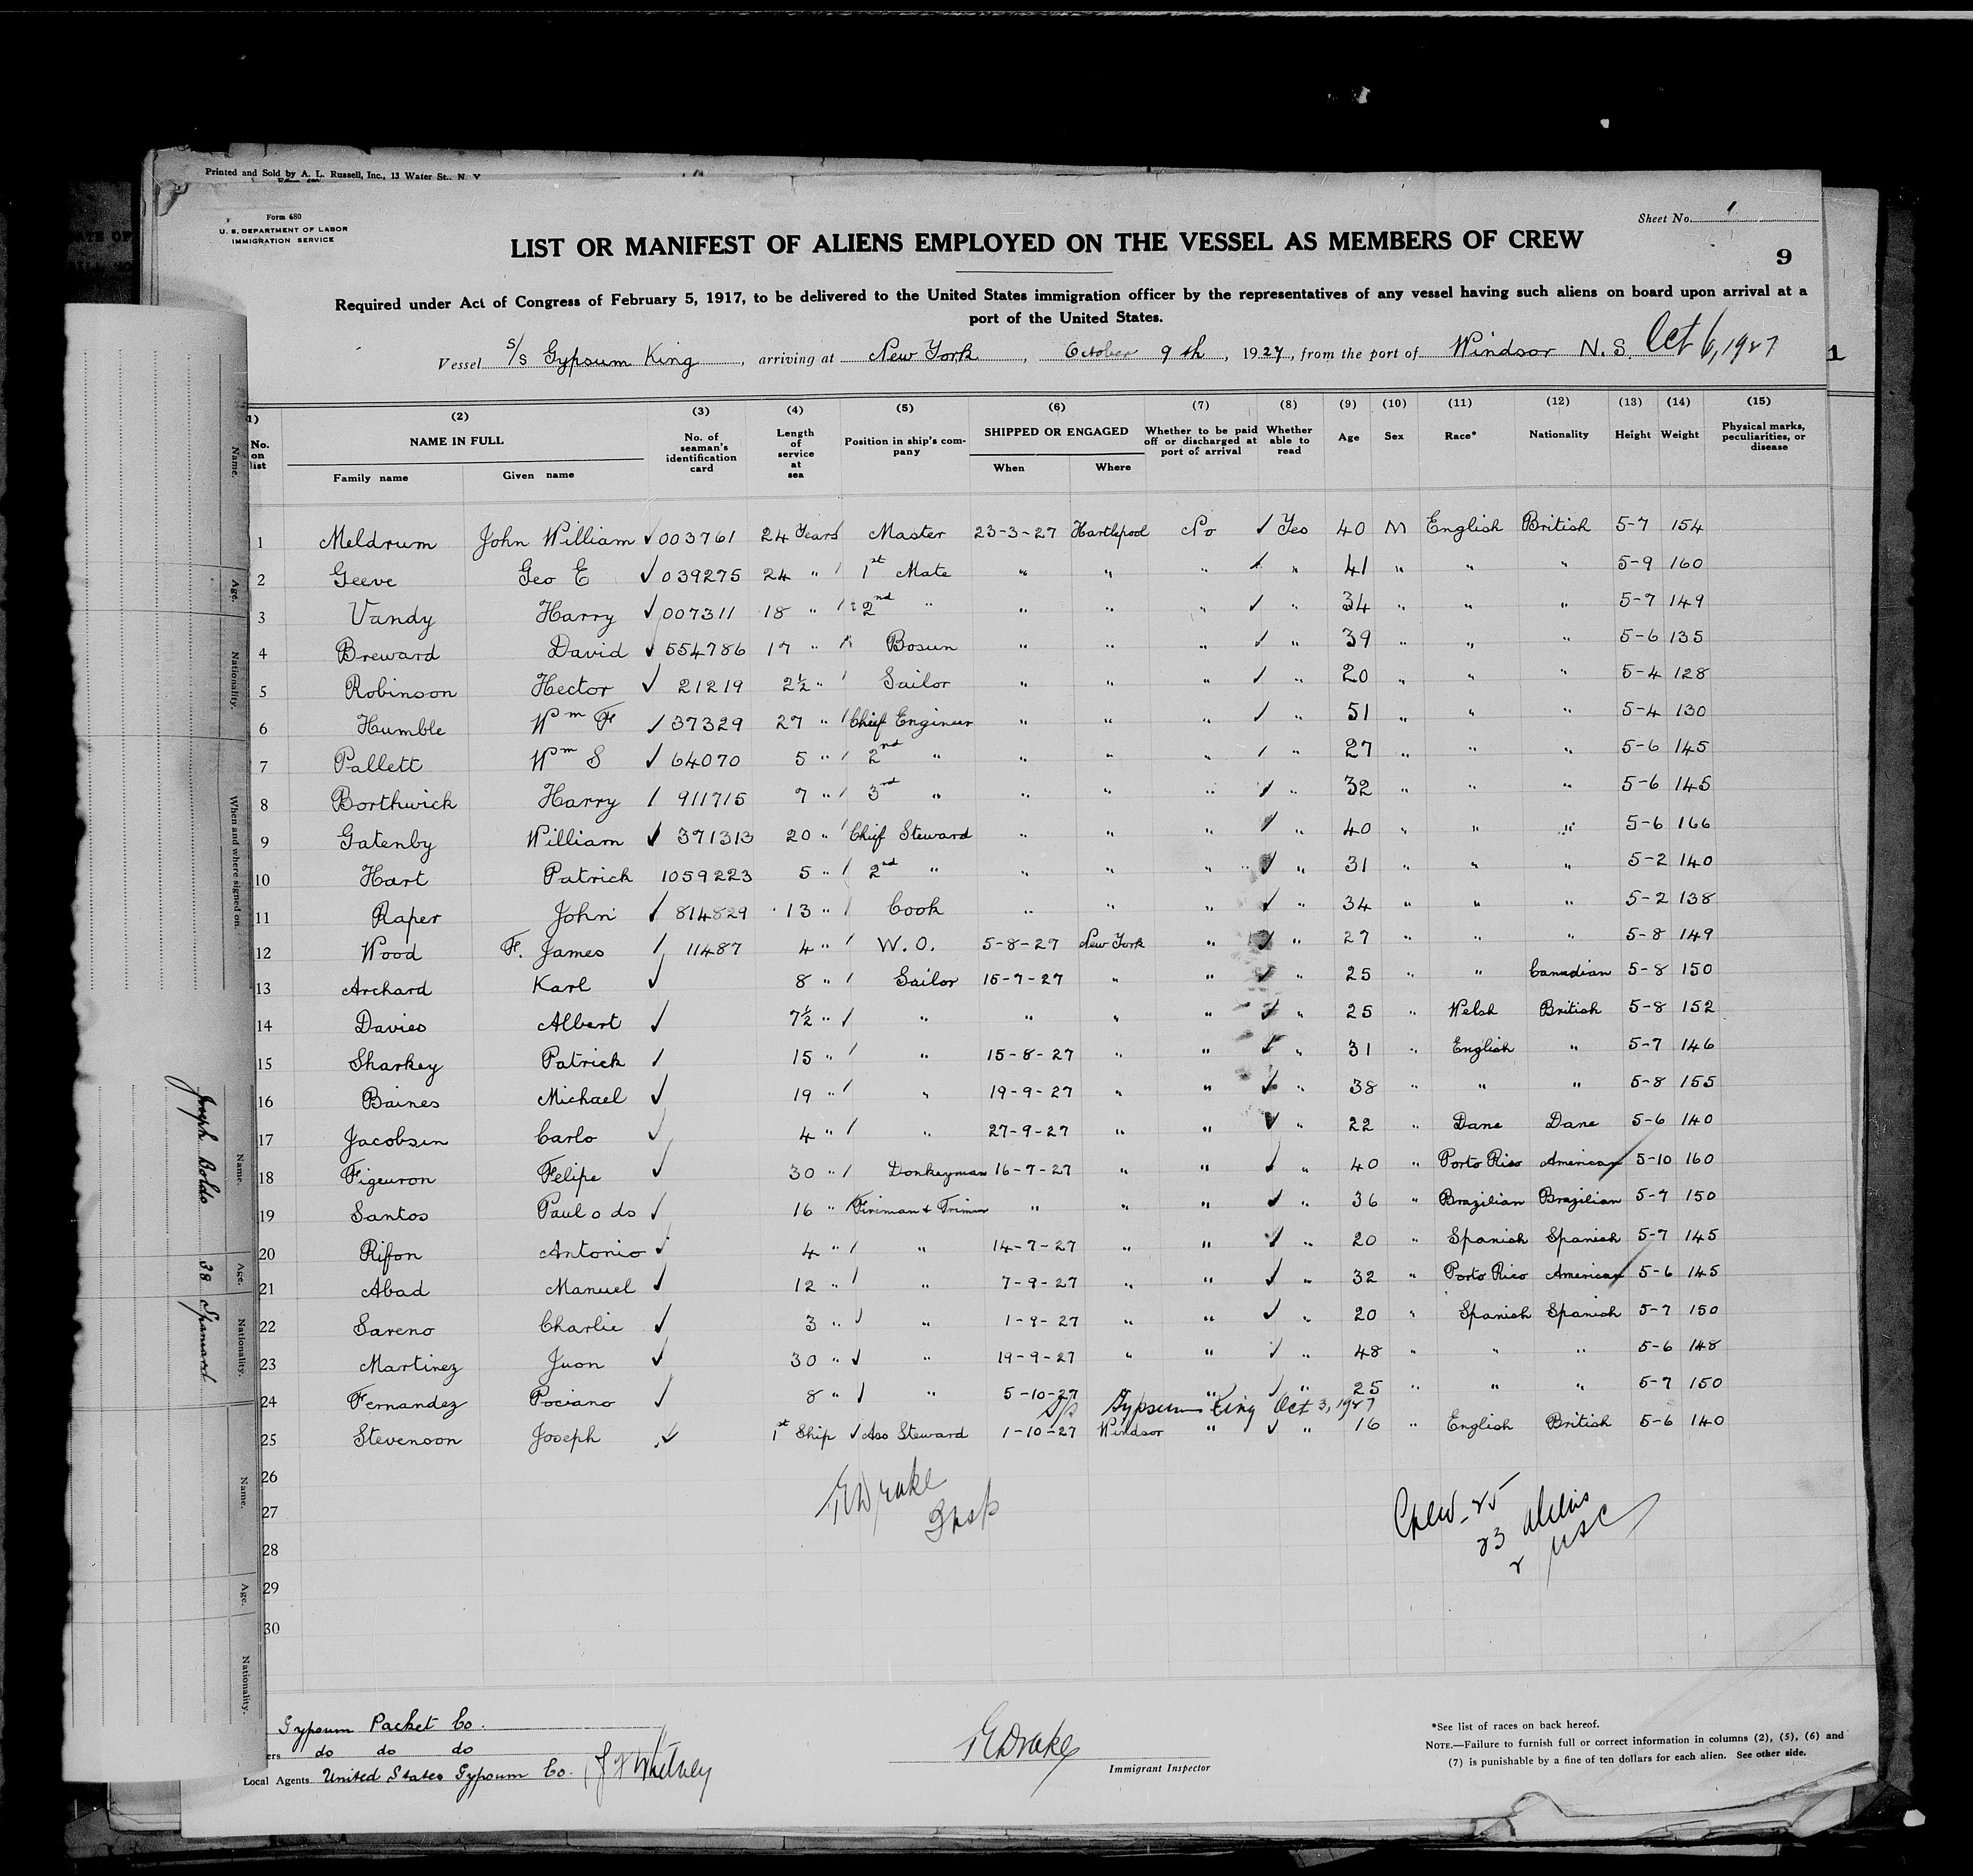 Printed and Sold by A. L. Russell, Inc., 13 Water St., N. Y
Form 680
U. S. DEPARTMENT OF LABOR
IMMIGRATION SERVICE
Sheet No. 1
LIST OR MANIFEST OF ALIENS EMPLOYED ON THE VESSEL AS MEMBERS OF CREW
9
Required under Act of Congress of February 5, 1917, to be delivered to the United States immigration officer by the representatives of any vessel having such aliens on board upon arrival at a
port of the United States.
Vessel S/S Gypsum King, arriving at New York, October 9th, 1927, from the port of Windsor N.S. Oct 6, 1927
1
(1) (2) (3) (4) (5) (6) (7) (8) (9) (10) (11) (12) (13) (14) (15)
No. on list NAME IN FULL Family name Given name No. of seaman's identification card Length of service at sea Position in ship's company SHIPPED OR ENGAGED When Where Whether to be paid off or discharged at port of arrival Whether able to read Age Sex Race* Nationality Height Weight Physical marks, peculiarities, or disease
1 Meldrum John William ✓ 003761 24 Years / Master 23-3-27 Hartlepool No ✓ Yes 40 M English British 5-7 154
2 Geeve Geo E ✓ 039275 24 " / 1st Mate " " " ✓ " 41 " " " 5-9 160
3 Vandy Harry ✓ 007311 18 " / 2nd " " " " ✓ " 34 " " " 5-7 149
4 Breward David ✓ 554786 17 " / Bosun " " " ✓ " 39 " " " 5-6 135
5 Robinson Hector ✓ 21219 2½ " / Sailor " " " ✓ " 20 " " " 5-4 128
6 Humble Wm F ✓ 37329 27 " / Chief Engineer " " " ✓ " 51 " " " 5-4 130
7 Pallett Wm S ✓ 64070 5 " / 2nd " " " " ✓ " 27 " " " 5-6 145
8 Borthwick Harry / 911715 7 " / 3rd " " " " ✓ " 32 " " " 5-6 145
9 Gatenby William ✓ 371313 20 " / Chief Steward " " " ✓ " 40 " " " 5-6 166
10 Hart Patrick 1059223 5 " / 2nd " " " " ✓ " 31 " " " 5-2 140
11 Raper John ✓ 814829 13 " / Cook " " " ✓ " 34 " " " 5-2 138
12 Wood F. James / 11487 4 " / W. O. 5-8-27 New York " ✓ " 27 " " " 5-8 149
13 Archard Karl ✓ 8 " / Sailor 15-7-27 " " ✓ " 25 " " Canadian 5-8 150
14 Davies Albert ✓ 7½ " / " " " " ✓ " 25 " Welsh British 5-8 152
15 Sharkey Patrick ✓ 15 " / " 15-8-27 " " ✓ " 31 " English " 5-7 146
16 Baines Michael ✓ 19 " / " 19-9-27 " " ✓ " 38 " " " 5-8 155
17 Jacobsen Carlo ✓ 4 " / " 27-9-27 " " ✓ " 22 " Dane Dane 5-6 140
18 Figeuron Felipe ✓ 30 " / Donkeyman 16-7-27 " " ✓ " 40 " Porto Rico American 5-10 160
19 Santos Paulo do ✓ 16 " / Fireman & Trimmer " " " ✓ " 36 " Brazilian Brazilian 5-7 150
20 Rifon Antonio ✓ 4 " / " 14-7-27 " " ✓ " 20 " Spanish Spanish 5-7 145
21 Abad Manuel ✓ 12 " / " 7-9-27 " " ✓ " 32 " Porto Rico American 5-6 145
22 Sareno Charlie ✓ 3 " ✓ " 1-9-27 " " ✓ " 20 " Spanish Spanish 5-7 150
23 Martinez Juon ✓ 30 " ✓ " 19-9-27 " " ✓ " 48 " " " 5-6 148
24 Fernandez Pociano ✓ 8 " / " 5-10-27 " " ✓ " 25 " " " 5-7 150
S/S Gypsum King Oct 3, 1927
25 Stevenson Joseph ✓ 1st Ship ✓ Ass Steward 1-10-27 Windsor " ✓ " 16 " English British 5-6 140
26
27
28
29
30
Drake
Insp
Crew - 25
23 aliens
2 USC
Gypsum Packet Co.
ers do do do
Local Agents United States Gypsum Co. J F Whitney
Drake
Immigrant Inspector
*See list of races on back hereof.
NOTE.—Failure to furnish full or correct information in columns (2), (5), (6) and
(7) is punishable by a fine of ten dollars for each alien. See other side.
Name. Age. Nationality. When and where signed on.
Name. Age. Nationality.
Joseph Boldo 38 Spaniard
Name. Age. Nationality.